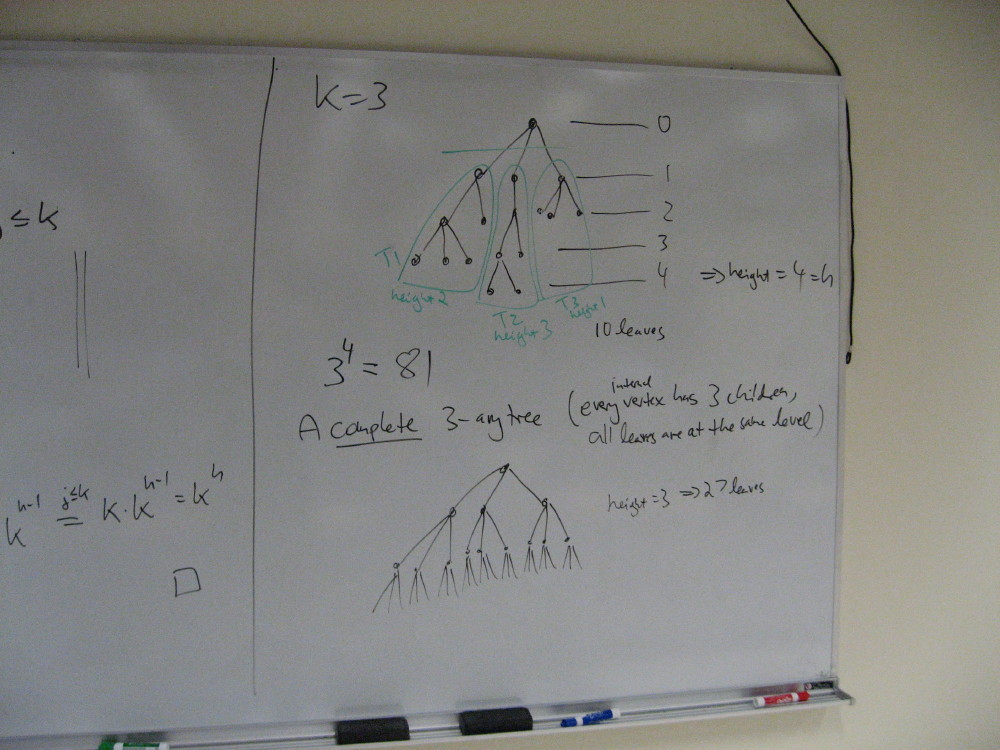 ≤ k
k^{h-1} \overset{j≤k}{=} k·k^{h-1} = k^h
□
k=3
0
1
2
3
4
⇒ height = 4 = h
T1
height 2
T2
height 3
T3
height 1
10 leaves
3^4 = 81
A complete 3-ary tree (every internal vertex has 3 children,
all leaves are at the same level)
height=3 ⇒ 27 leaves